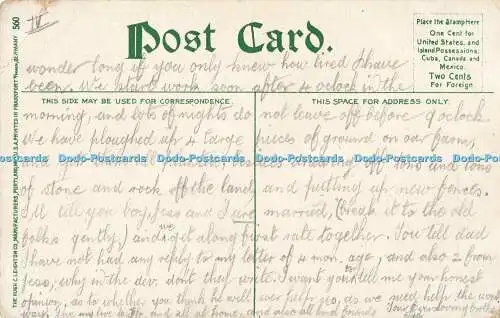 560
IV
Post Card.
Place the Stamp Here
One Cent for
United States, and
Island Possessions,
Cuba, Canada and
Mexico.
Two Cents
For Foreign
wonder long if you only knew how tired I have
been. We start work soon after 4 oclock in the
THIS SIDE MAY BE USED FOR CORRESPONDENCE
THIS SPACE FOR ADDRESS ONLY.
morning, and lots of nights do not leave off before 9 oclock
we have ploughed up 4 large pieces of ground on our farm,
Dodo-Postcards Dodo-Postcards Dodo-Postcards Dodo-Postcards Dodo-Postcards Dodo-Postcards
of stone and rock off the land, and putting up new fences.
I'll tell you boy, Jess and I are married, (break it to the old
folks gently,) and we get along first rate together. You tell dad
I have not had any reply to my letter of 4 mon. ago, and also 2 from
Jess, why in the dev. dont they write. I want you tell me your honest
opinion, as to whether you think he will ever help us, as we need help the worst
THE HUGH C. LEIGHTON CO., MANUFACTURERS, PORTLAND, ME., U.S.A. PRINTED IN FRANKFORT GERMANY